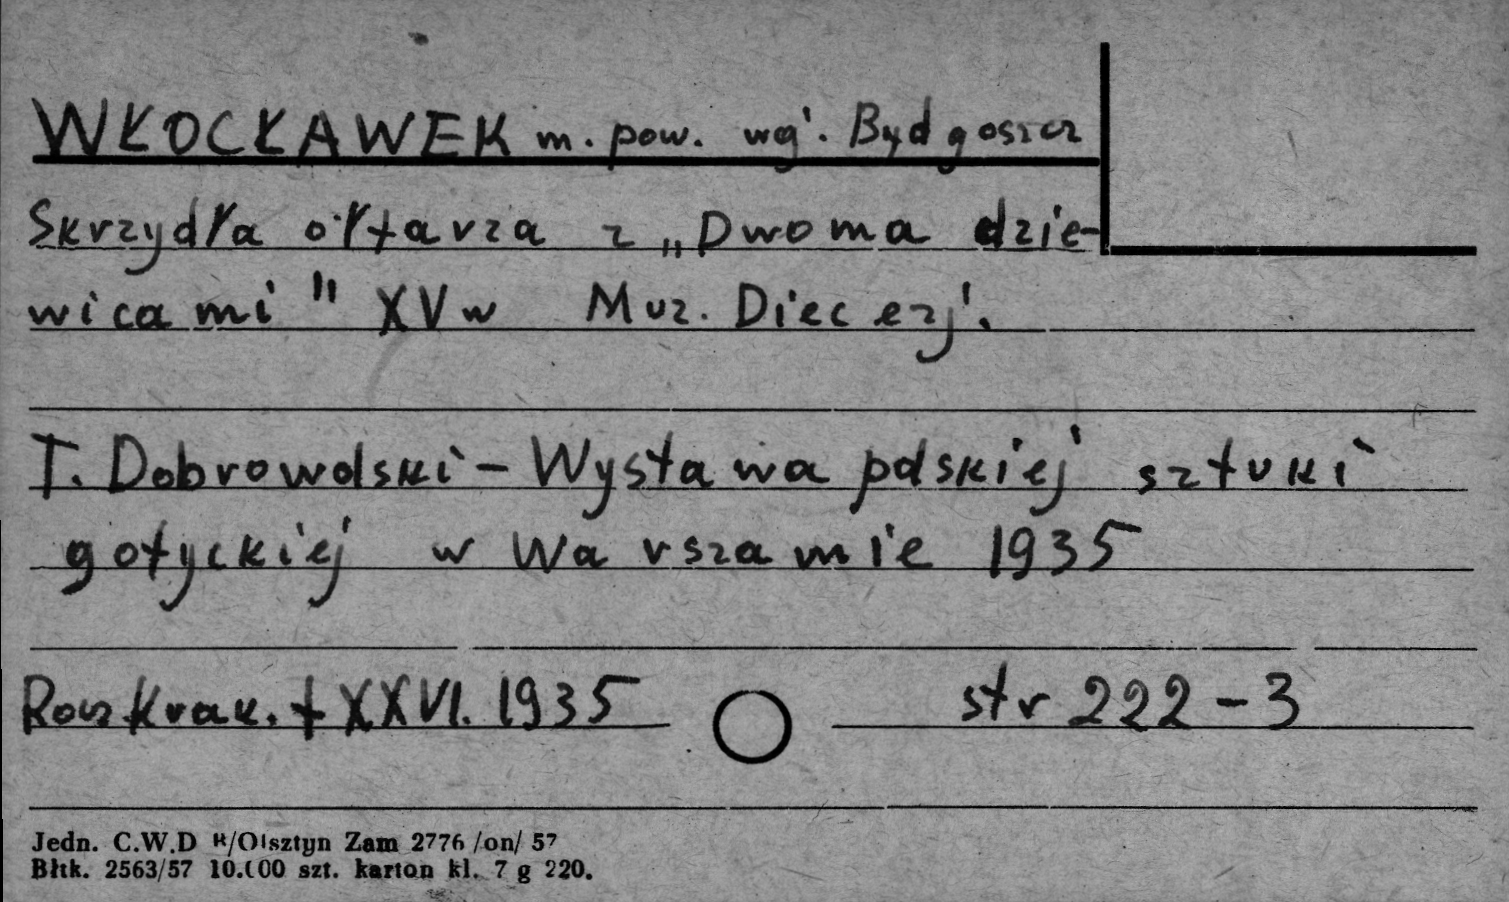 WŁOCŁAWEK m. pow. woj. Bydgoszcz
Skrzydła ołtarza z „Dwoma dzie-
wicami" XV w Muz. Diecezj.
T. Dobrowolski - Wystawa polskiej sztuki
gotyckiej w Warszawie 1935
Rocz Krak. t XXVI. 1935 str 222-3
Jedn. C.W.D R/Olsztyn Zam 2776 /on/ 57
Błtk. 2563/57 10.000 szt. karton kl. 7 g 220.